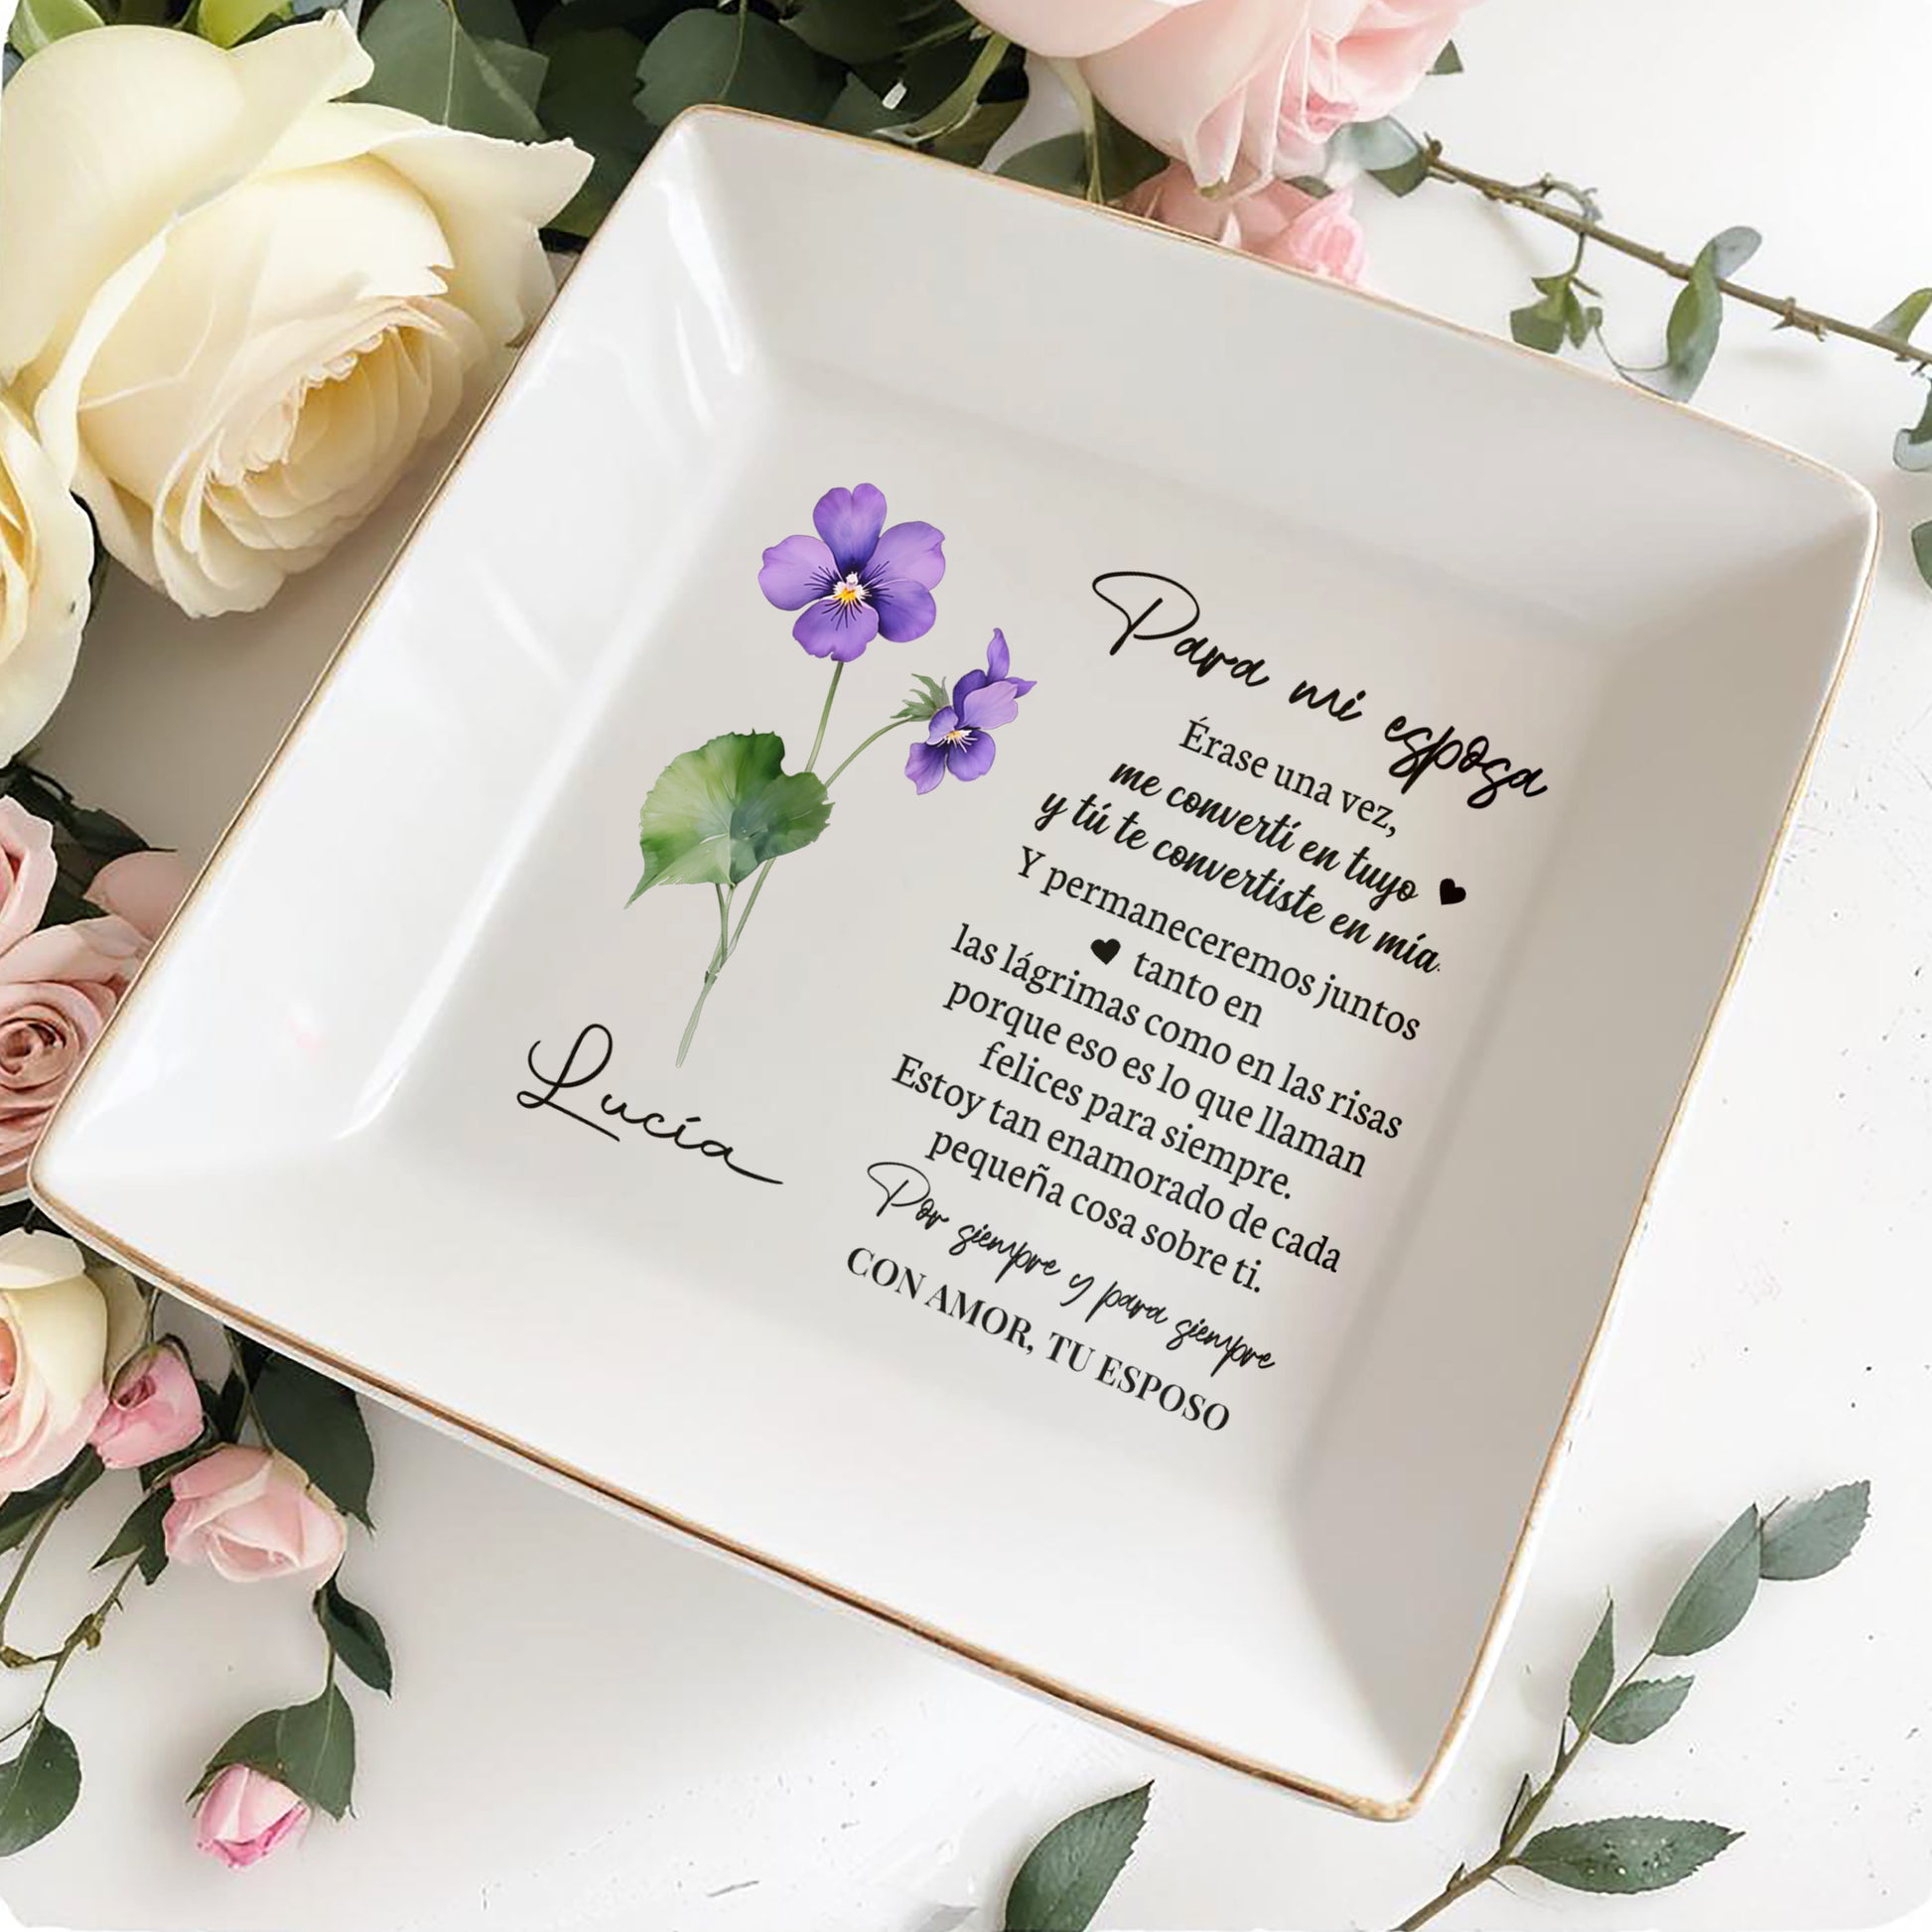 Para mi esposa
Érase una vez,
me convertí en tuyo
y tú te convertiste en mía.
Y permaneceremos juntos
tanto en
las lágrimas como en las risas
porque eso es lo que llaman
felices para siempre.
Estoy tan enamorado de cada
pequeña cosa sobre ti.
Por siempre y para siempre
CON AMOR, TU ESPOSO
Lucía